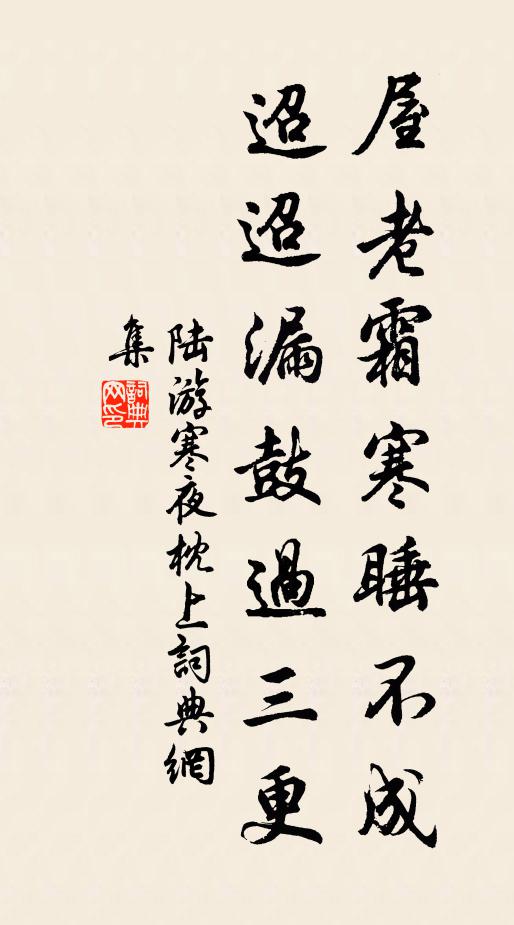 屋老霜寒睡不成
迢迢漏鼓過三更
陸游寒夜枕上詞典網
集
詞典網印